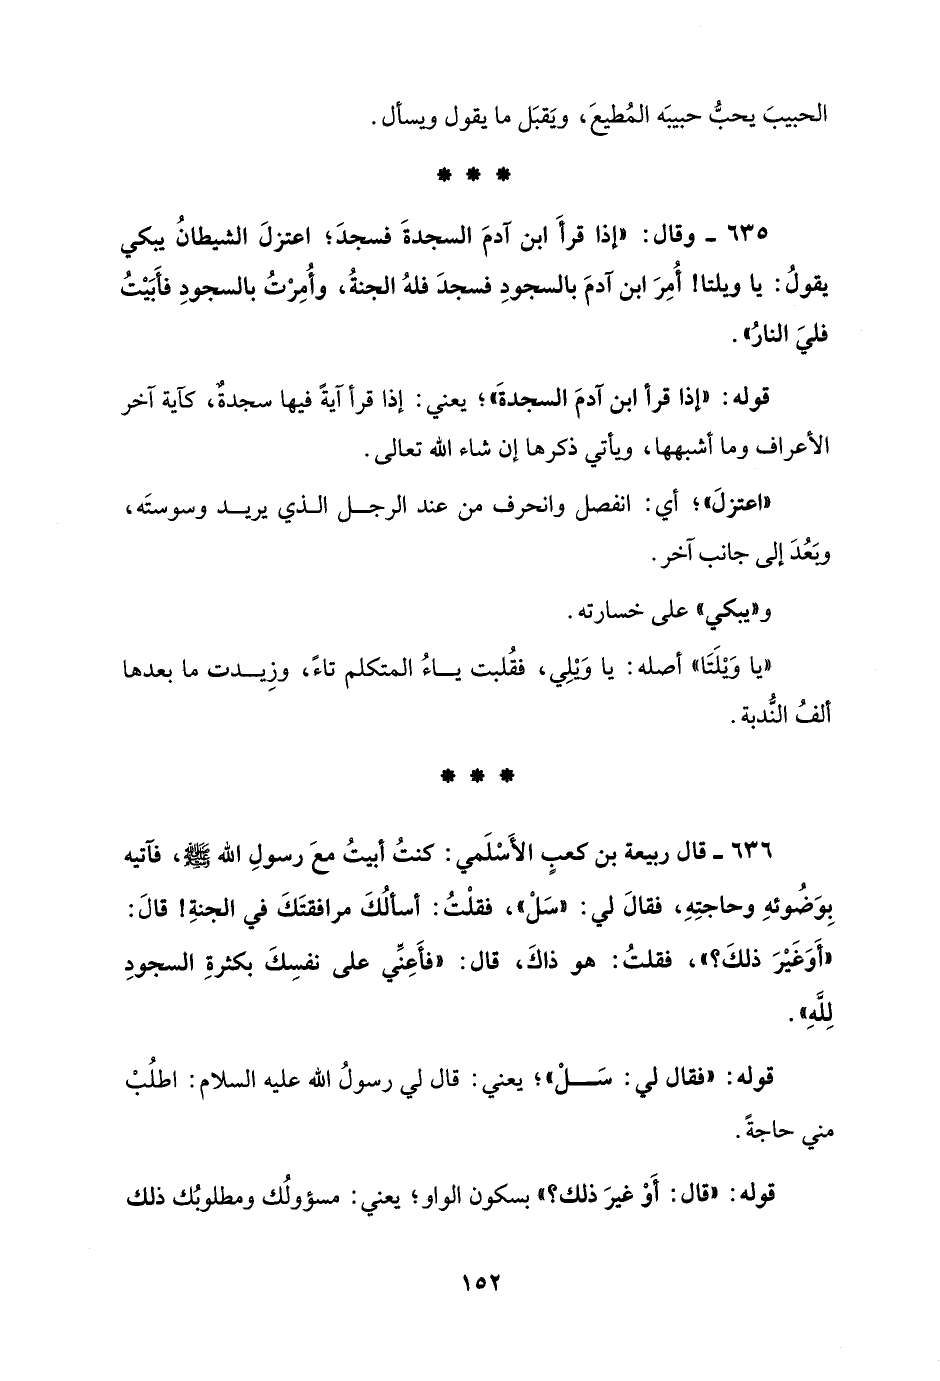 الحبيبَ يحبُّ حبيبَه المُطيعَ، ويَقبَل ما يقول ويسأل.
* * *
٦٣٥ ـ وقال: «إذا قرأَ ابن آدمَ السجدةَ فسجدَ؛ اعتزلَ الشيطانُ يبكي
يقولُ: يا ويلتا! أُمِرَ ابن آدمَ بالسجودِ فسجدَ فلهُ الجنةُ، وأُمِرْتُ بالسجودِ فأَبَيْتُ
فليَ النارُ».
قوله: «إذا قرأ ابن آدمَ السجدةَ»؛ يعني: إذا قرأ آيةً فيها سجدةٌ، كآية آخر
الأعراف وما أشبهها، ويأتي ذكرها إن شاء الله تعالى.
«اعتزلَ»؛ أي: انفصل وانحرف من عند الرجل الذي يريد وسوستَه،
وبَعُدَ إلى جانب آخر.
و«يبكي» على خسارته.
«يا وَيْلَتَا» أصله: يا وَيْلِي، فقُلبت ياءُ المتكلم تاءً، وزِيدت ما بعدها
ألفُ النُّدبة.
* * *
٦٣٦ ـ قال ربيعة بن كعبٍ الأَسْلَمي: كنتُ أبيتُ معَ رسولِ الله ﷺ، فآتيه
بِوَضُوئهِ وحاجتِهِ، فقالَ لي: «سَلْ»، فقلْتُ: أسألُكَ مرافقتَكَ في الجنةِ! قالَ:
«أَوَغَيْرَ ذلكَ؟»، فقلتُ: هو ذاكَ، قال: «فأَعِنِّي على نفسِكَ بكثرةِ السجودِ
لِلَّهِ».
قوله: «فقال لي: سَلْ»؛ يعني: قال لي رسولُ الله عليه السلام: اطلُبْ
مني حاجةً.
قوله: «قال: أَوْ غيرَ ذلك؟» بسكون الواو؛ يعني: مسؤولُك ومطلوبُك ذلك
١٥٢